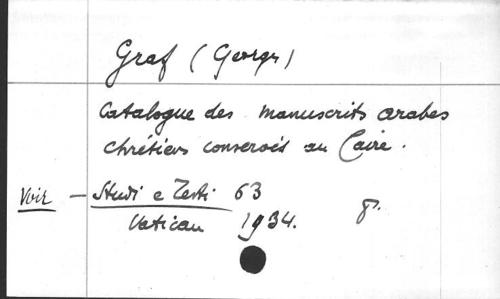 Graf (Georges)
Catalogue des manuscrits arabes
chrétiens conservés au Caire.
Voir — Studi e Testi 63
Vatican 1934. 8°.